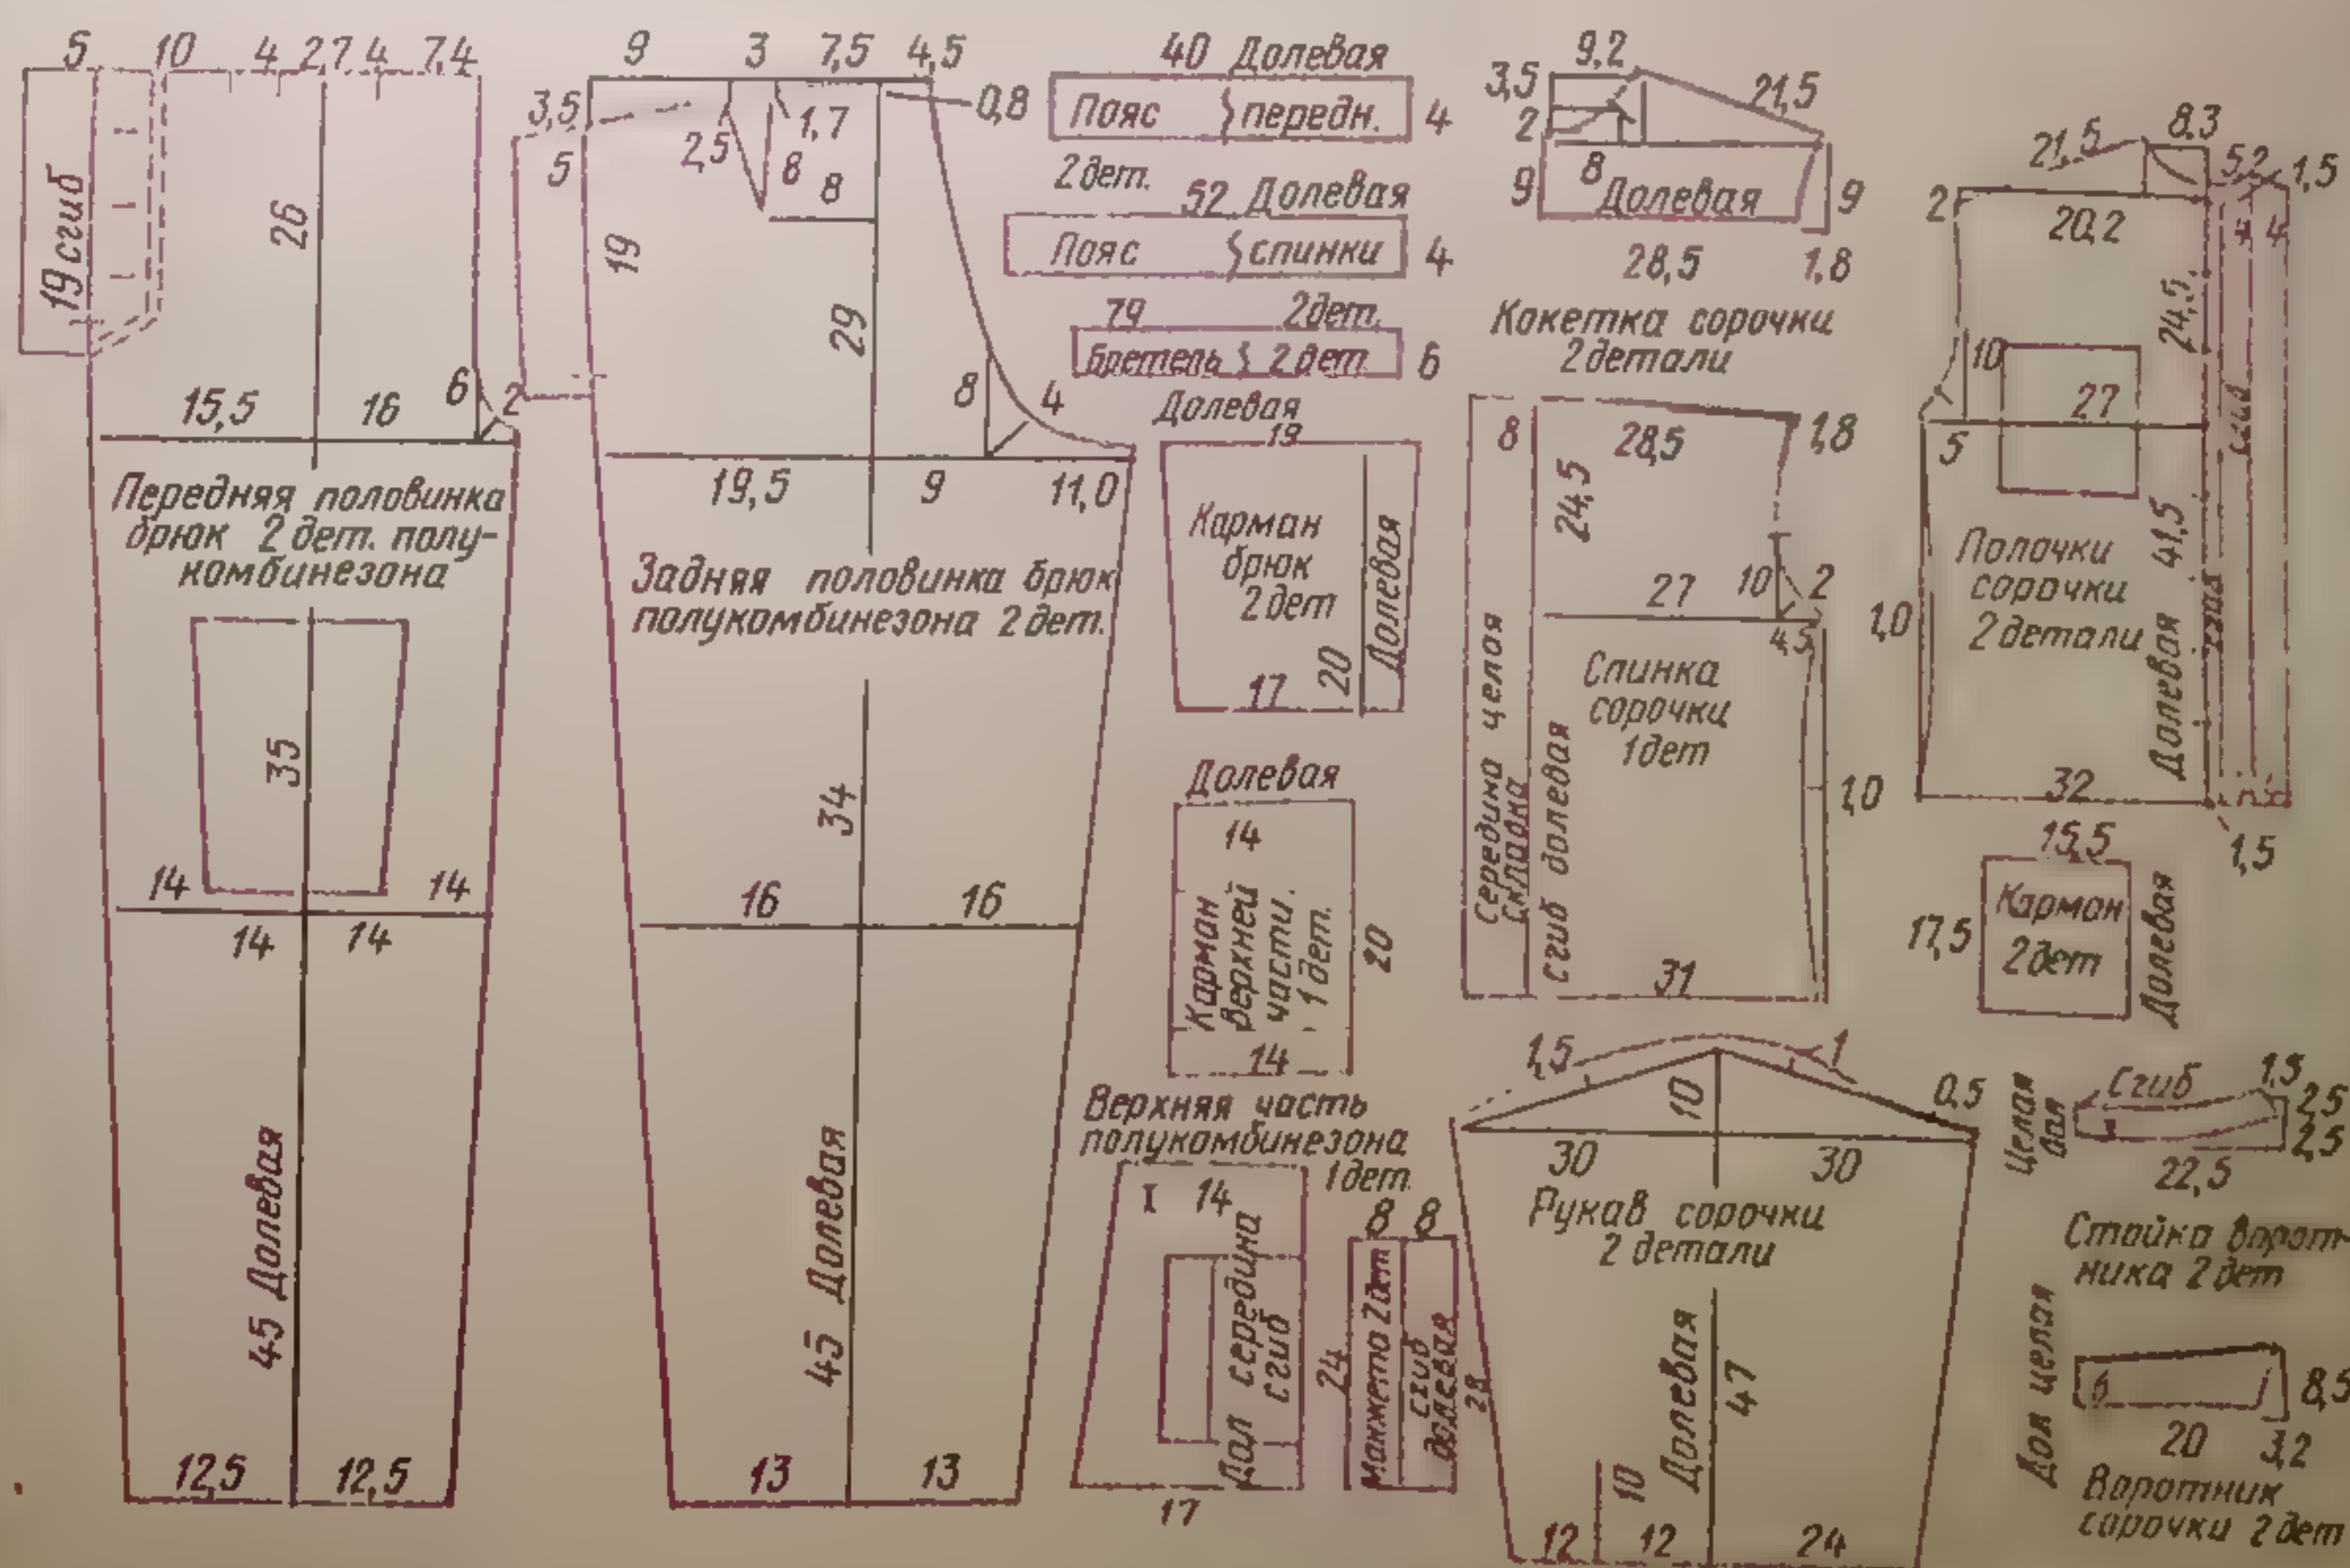 5 10 4 27 4 7,4
19 сгиб
26
15,5 16 6 2
Передняя половинка
брюк 2 дет. полу-
комбинезона
35
14 14
14 14
45 Долевая
12,5 12,5
9 3 7,5 4,5
3,5 0,8
5 2,5 1,7
8 8
19
29
8 4
19,5 9 11,0
Задняя половинка брюк
полукомбинезона 2 дет.
34
16 16
45 Долевая
13 13
40 Долевая
Пояс передн. 4
2 дет.
52 Долевая
Пояс спинки 4
79 2 дет.
бретель 2 дет 6
Долевая
19
Карман
брюк
2 дет
20 Долевая
17
Долевая
14
Карман
верхней
части.
1 дет.
20
14
Верхняя часть
полукомбинезона
1 дет.
I 14
Дол середина
сгиб
17
8 8
24
Манжета 2 дет
сгиб
долевая
28
9,2
3,5 21,5
2
8
9 Долевая 9
28,5 1,8
Кокетка сорочки
2 детали
8 28,5 1,8
24,5
27 10 2
4,5
Середина целая
складка
сгиб долевая
Спинка
сорочки
1 дет
1,0
31
1,5 1
10 0,5
30 30
Рукав сорочки
2 детали
Долевая
47
10
12 12 24
21,5 8.3
5,2 1,5
2 20,2 4 4
24,5
10
27
5
сгиб
Полочки
сорочки
2 детали
Долевая 41,5
1,0
32
1,5
15,5
Карман
2 дет
17,5
Долевая
Целая
Сгиб 1,5
2,5
2,5
22,5
Стойка ворот-
ника 2 дет
Дол целая
6 8,5
20 3,2
Воротник
сорочки 2 дет